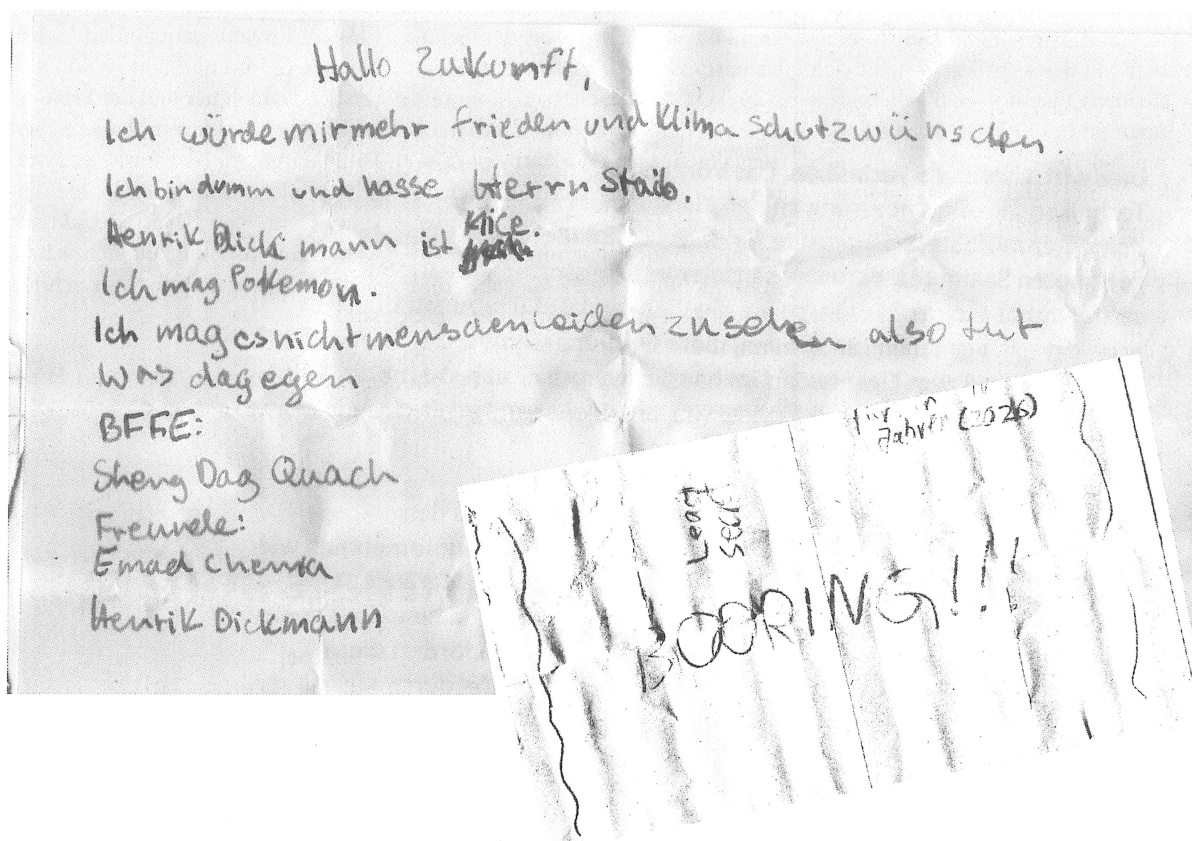 Hallo Zukumft,
Ich würde mir mehr Frieden und Klima schutz wünschen.
Ich bin dumm und hasse Herrn Staib.
Henrik Dick mann ist
Ich mag Pokemon.
Ich mag es nicht menschen leiden zu sehen also tut
was dagegen
BFFE:
Sheng Dag Quach
Freunde:
Emad
Henrik Dickmann
Jahren (2026)
BOORING!!!